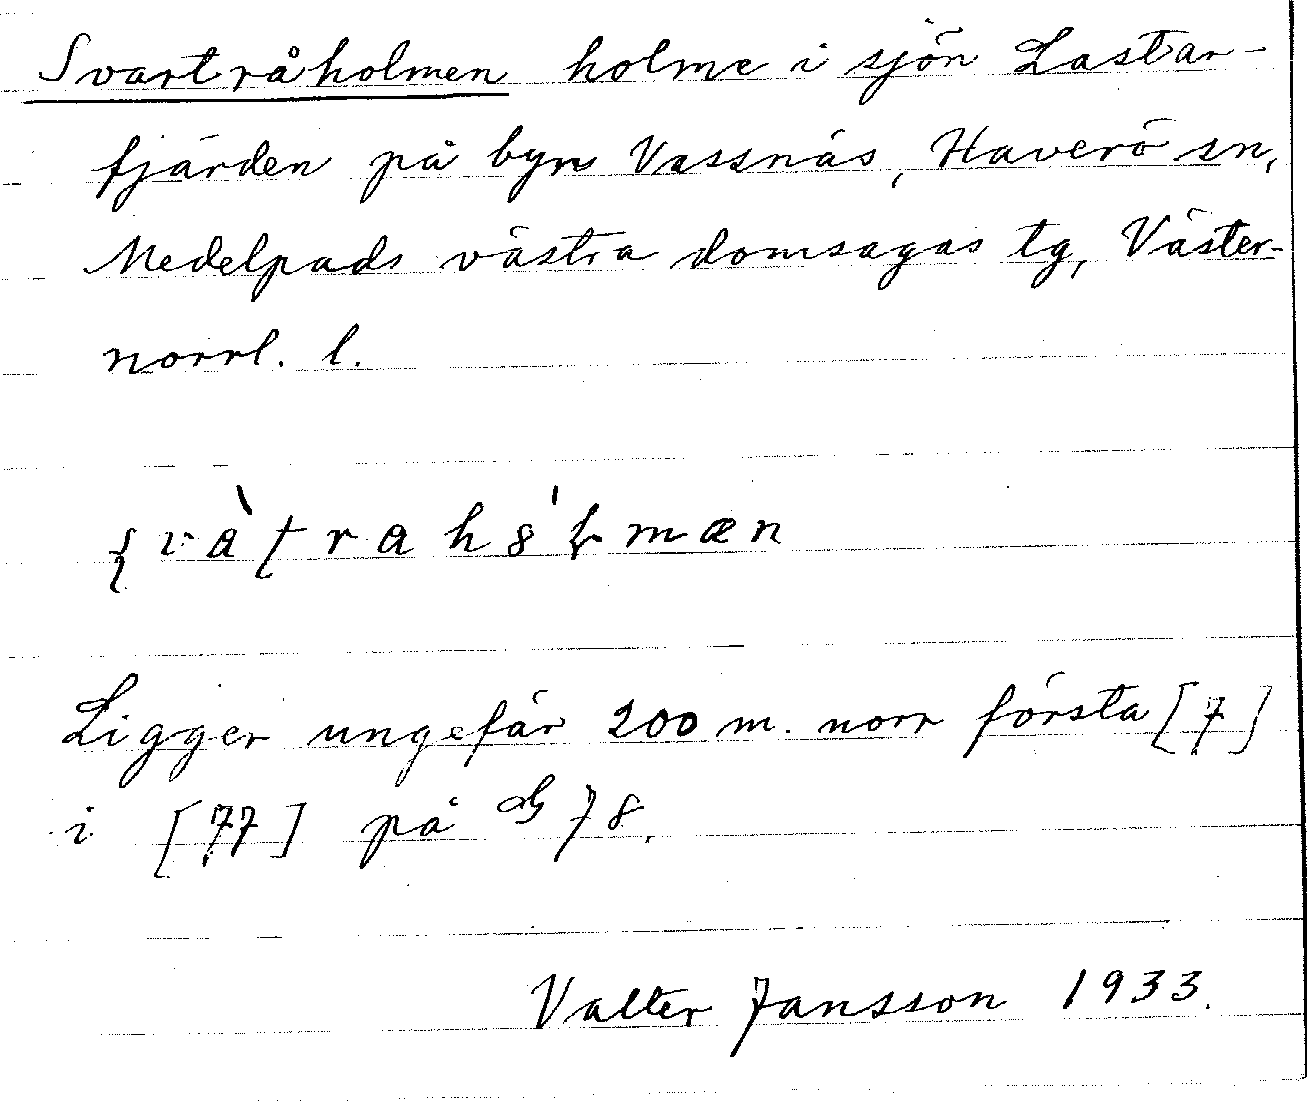 Svartråholmen holme i sjön Lastar-
fjärden på byn Vassnäs, Haverö sn,
Medelpads västra domsagas tg, Väster-
norrl. l.
Ligger ungefär 200 m. norr första [7]
i [77] på G 78.
Valter Jansson 1933.